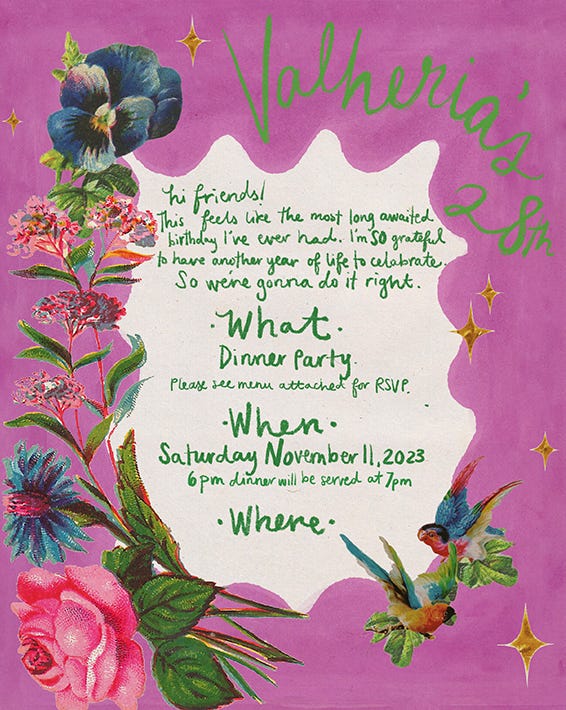 Valheria's
28th
hi friends!
This feels like the most long awaited
birthday I've ever had. I'm SO grateful
to have another year of life to celebrate.
So we're gonna do it right.
·What·
Dinner Party.
Please see menu attached for RSVP.
·When·
Saturday November 11, 2023
6pm dinner will be served at 7pm
·Where·